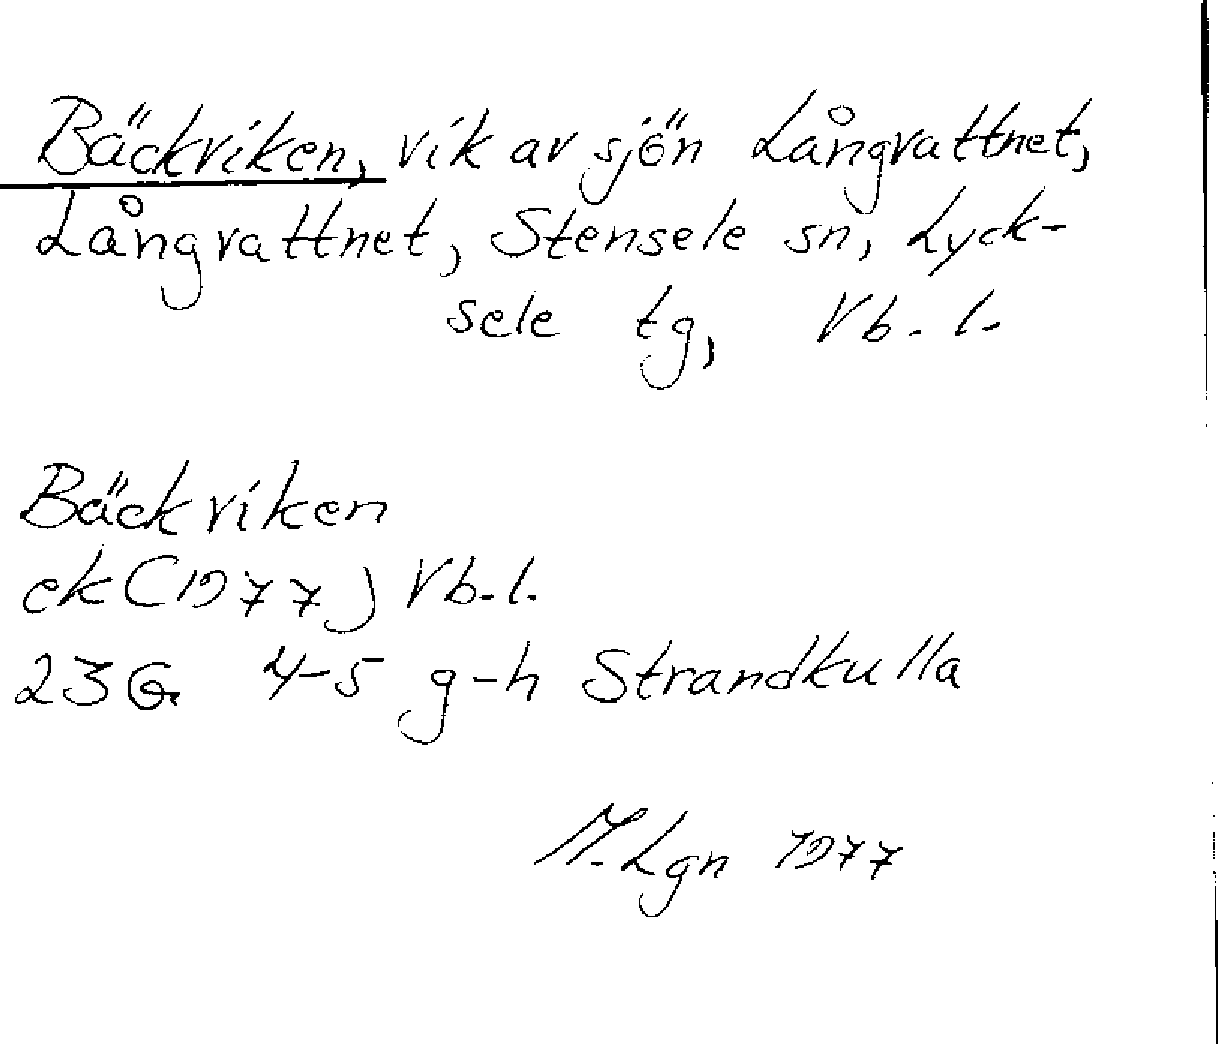 Bäckviken, vik av sjön Långvattnet,
Långvattnet, Stensele sn, Lyck-
sele tg, Vb. l.
Bäckviken
ek (1977) Vb. l.
23G 4-5 g-h Strandkulla
M. Lgn 1977